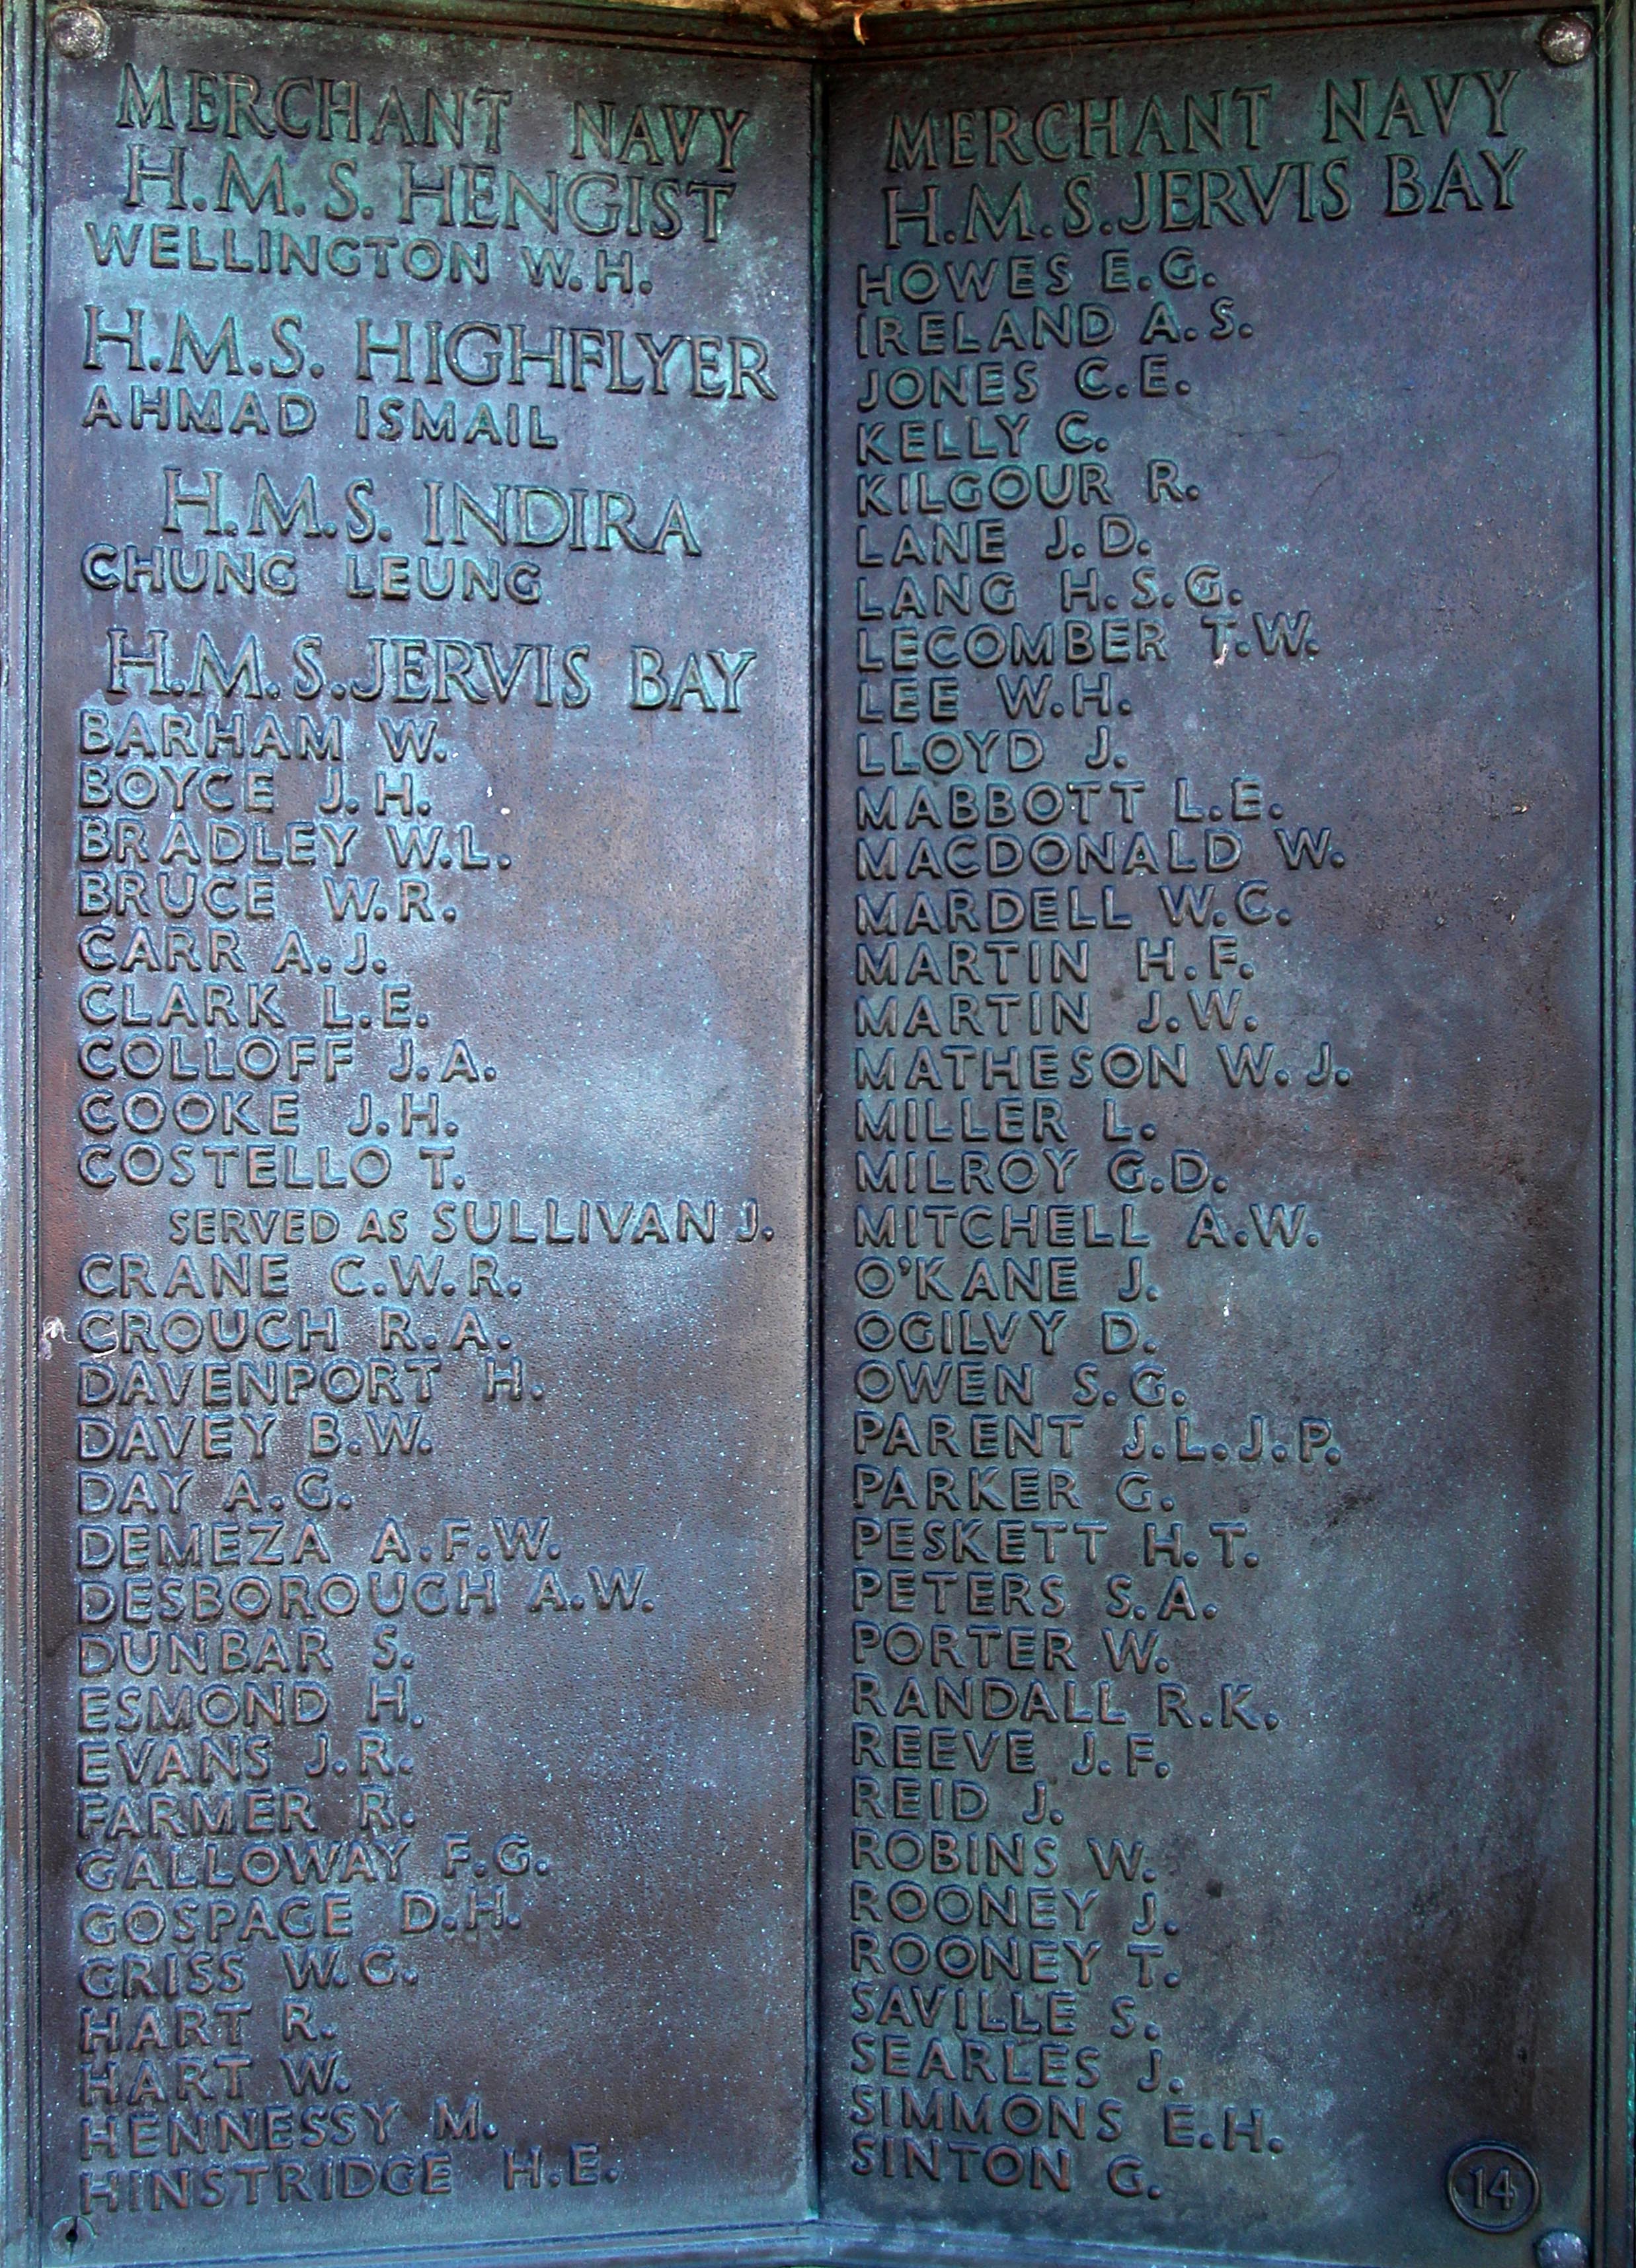 MERCHANT NAVY
H.M.S. HENGIST
WELLINGTON W.H.
H.M.S. HIGHFLYER
AHMAD ISMAIL
H.M.S. INDIRA
CHUNG LEUNG
H.M.S. JERVIS BAY
BARHAM W.
BOYCE J.H.
BRADLEY W.L.
BRUCE W.R.
CARR A.J.
CLARK L.E.
COLLOFF J.A.
COOKE J.H.
COSTELLO T.
SERVED AS SULLIVAN J.
CRANE C.W.R.
CROUCH R.A.
DAVENPORT H.
DAVEY B.W.
DAY A.G.
DEMEZA A.F.W.
DESBOROUGH A.W.
DUNBAR S.
ESMOND H.
EVANS J.R.
FARMER R.
GALLOWAY F.G.
GOSPAGE D.H.
GRISS W.G.
HART R.
HART W.
HENNESSY M.
HINSTRIDGE H.E.
MERCHANT NAVY
H.M.S. JERVIS BAY
HOWES E.G.
IRELAND A.S.
JONES C.E.
KELLY C.
KILGOUR R.
LANE J.D.
LANG H.S.G.
LECOMBER T.W.
LEE W.H.
LLOYD J.
MABBOTT L.E.
MACDONALD W.
MARDELL W.C.
MARTIN H.F.
MARTIN J.W.
MATHESON W.J.
MILLER L.
MILROY G.D.
MITCHELL A.W.
O'KANE J.
OGILVY D.
OWEN S.G.
PARENT J.L.J.P.
PARKER G.
PESKETT H.T.
PETERS S.A.
PORTER W.
RANDALL R.K.
REEVE J.F.
REID J.
ROBINS W.
ROONEY J.
ROONEY T.
SAVILLE S.
SEARLES J.
SIMMONS E.H.
SINTON G.
14